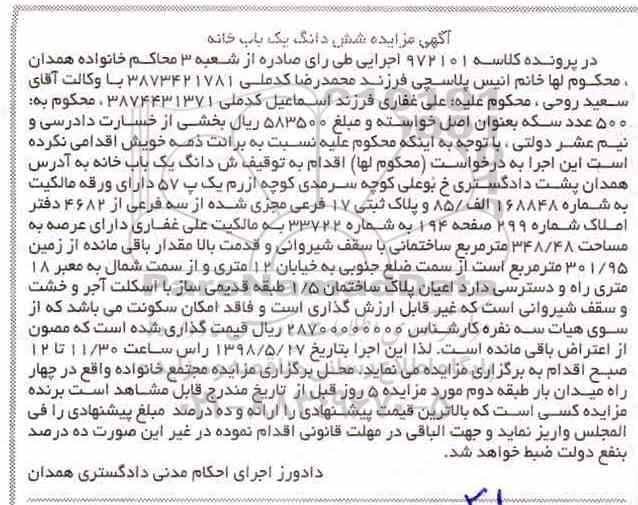 آگهی مزایده شش دانگ یک باب خانه
در پرونده کلاسه ۹۷۲۱۰۱ اجرایی طی رای صادره از شعبه ۳ محاکم خانواده همدان
، محکوم لها خانم انیس پلاسچی فرزند محمدرضا کدملی ۳۸۷۳۴۲۱۷۸۱ با وکالت آقای
سعید روحی ، محکوم علیه: علی غفاری فرزند اسماعیل کدملی ۳۸۷۴۴۳۱۳۷۱ ، محکوم به:
۵۰۰ عدد سکه بعنوان اصل خواسته و مبلغ ۵۸۳۵۰۰ ریال بخشی از خسارت دادرسی و
نیم عشر دولتی ، با توجه به اینکه محکوم علیه نسبت به برائت ذمه خویش اقدامی نکرده
است این اجرا به درخواست (محکوم لها) اقدام به توقیف ش دانگ یک باب خانه به آدرس
همدان پشت دادگستری خ بوعلی کوچه سرمدی کوچه آزرم یک پ ۵۷ دارای ورقه مالکیت
به شماره ۱۶۸۸۴۸ الف/۸۵ و پلاک ثبتی ۱۷ فرعی مجزی شده از سه فرعی از ۴۶۸۲ دفتر
املاک شماره ۲۹۹ صفحه ۱۹۴ به شماره ۳۳۷۲۲ به مالکیت علی غفاری دارای عرصه به
مساحت ۳۴۸/۴۸ مترمربع ساختمانی با سقف شیروانی و قدمت بالا مقدار باقی مانده از زمین
۳۰۱/۹۵ مترمربع است از سمت ضلع جنوبی به خیابان ۱۲ متری و از سمت شمال به معبر ۱۸
متری راه و دسترسی دارد اعیان پلاک ساختمان ۱/۵ طبقه قدیمی ساز با اسکلت آجر و خشت
و سقف شیروانی است که غیر قابل ارزش گذاری است و فاقد امکان سکونت می باشد که از
سوی هیات سه نفره کارشناس ۲۸۷۰۰۰۰۰۰۰۰ ریال قیمت گذاری شده است که مصون
از اعتراض باقی مانده است. لذا این اجرا بتاریخ ۱۳۹۸/۵/۲۷ راس ساعت ۱۱/۳۰ تا ۱۲
صبح اقدام به برگزاری مزایده می نماید. محل برگزاری مزایده مجتمع خانواده واقع در چهار
راه میدان بار طبقه دوم مورد مزایده ۵ روز قبل از تاریخ مندرج قابل مشاهد است برنده
مزایده کسی است که بالاترین قیمت پیشنهادی را ارائه و ده درصد مبلغ پیشنهادی را فی
المجلس واریز نماید و جهت الباقی در مهلت قانونی اقدام نموده در غیر این صورت ده درصد
بنفع دولت ضبط خواهد شد.
دادورز اجرای احکام مدنی دادگستری همدان